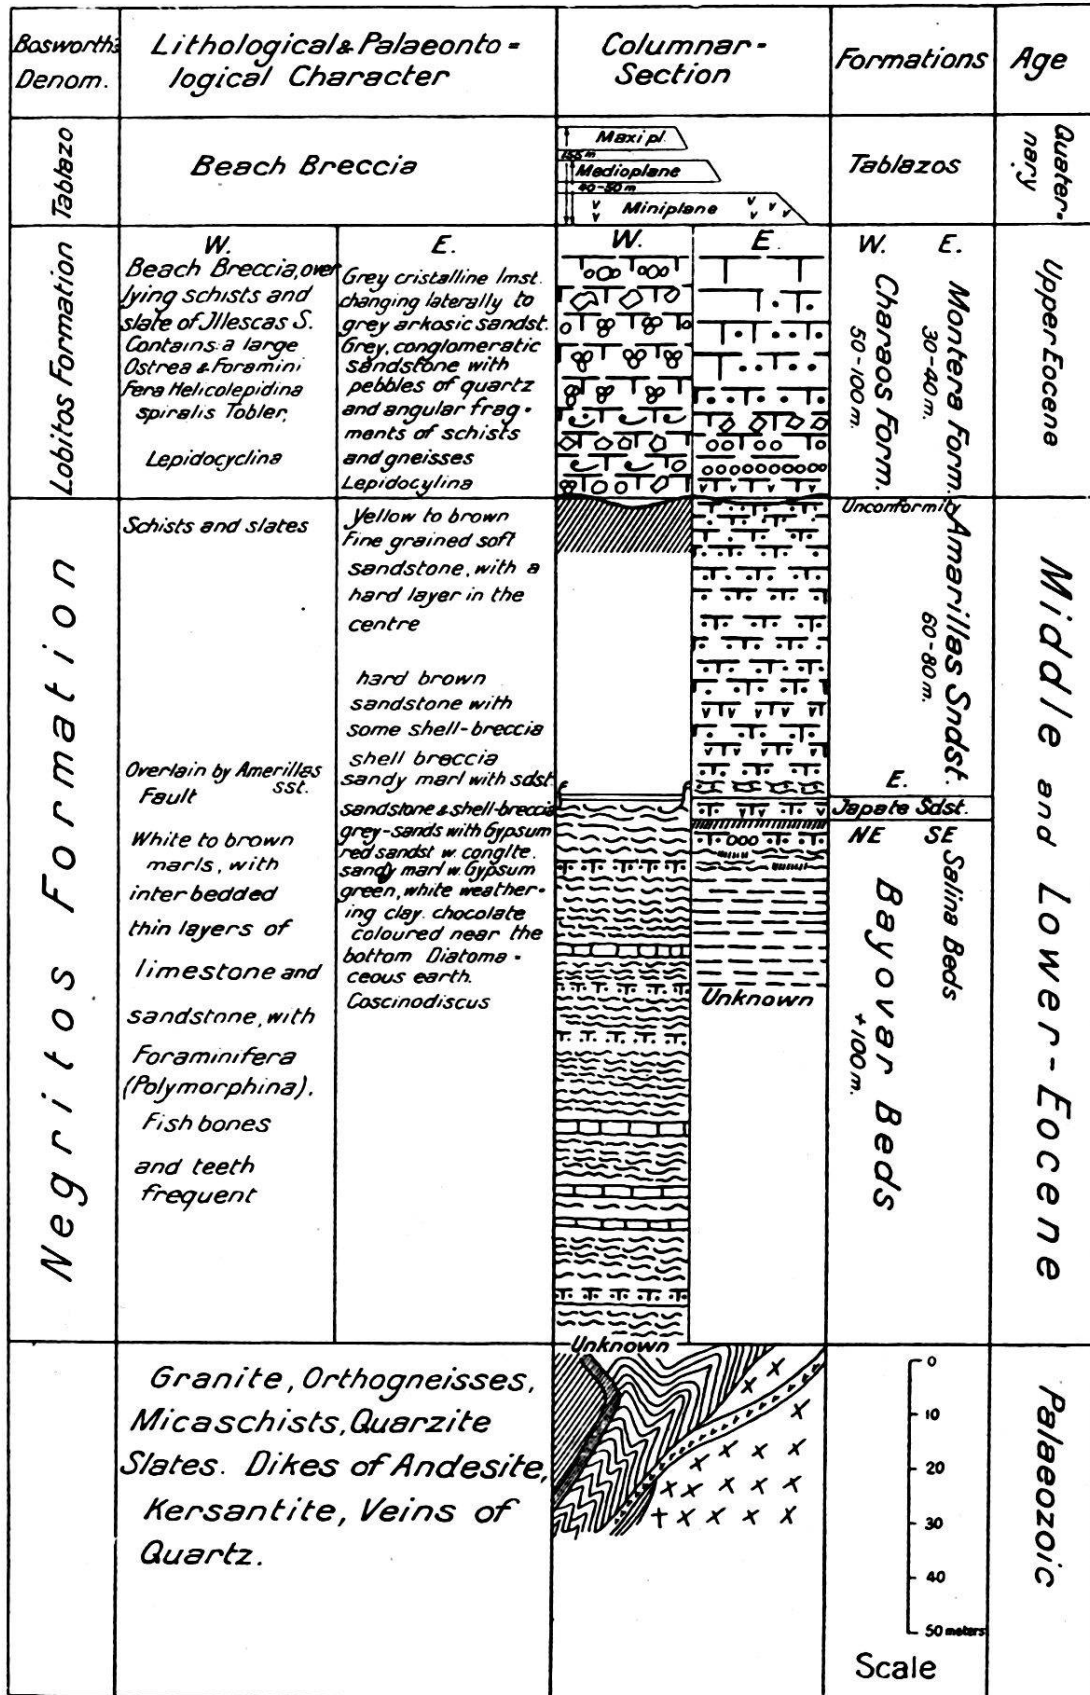 Bosworth's
Denom.
Lithological & Palaeonto =
logical Character
Columnar-
Section
Formations
Age
Tablazo
Beach Breccia
Maxipl.
155 m
Medioplane
40-50 m
Miniplane
Tablazos
Quater-
nary
Lobitos Formation
W.
Beach Breccia, over
lying schists and
slate of Jllescas S.
Contains a large
Ostrea & Foramini
Fera Helicolepidina
spiralis Tobler,
Lepidocyclina
E.
Grey cristalline lmst.
changing laterally to
grey arkosic sandst.
Grey, conglomeratic
sandstone with
pebbles of quartz
and angular frag-
ments of schists
and gneisses
Lepidocylina
W.
E.
W.
E.
Charaos Form.
50-100 m.
Montera Form.
30-40 m.
Upper Eocene
Negritos Formation
Schists and slates
Overlain by Amerillas
sst.
Fault
White to brown
marls, with
interbedded
thin layers of
limestone and
sandstone, with
Foraminifera
(Polymorphina).
Fish bones
and teeth
frequent
Yellow to brown
Fine grained soft
sandstone, with a
hard layer in the
centre
hard brown
sandstone with
some shell-breccia
shell breccia
sandy marl with sdst
sandstone & shell-breccia
grey-sands with Gypsum
red sandst w. conglte.
sandy marl w. Gypsum
green, white weather-
ing clay. chocolate
coloured near the
bottom Diatoma-
ceous earth.
Coscinodiscus
Unknown
Unknown
Unconformity
Amarillas Sndst.
60-80 m.
E.
Japate Sdst.
NE
SE
Bayovar Beds
+100 m.
Salina Beds
Middle and Lower-Eocene
Granite, Orthogneisses,
Micaschists, Quarzite
Slates. Dikes of Andesite,
Kersantite, Veins of
Quartz.
0
10
20
30
40
50 meters
Scale
Palaeozoic